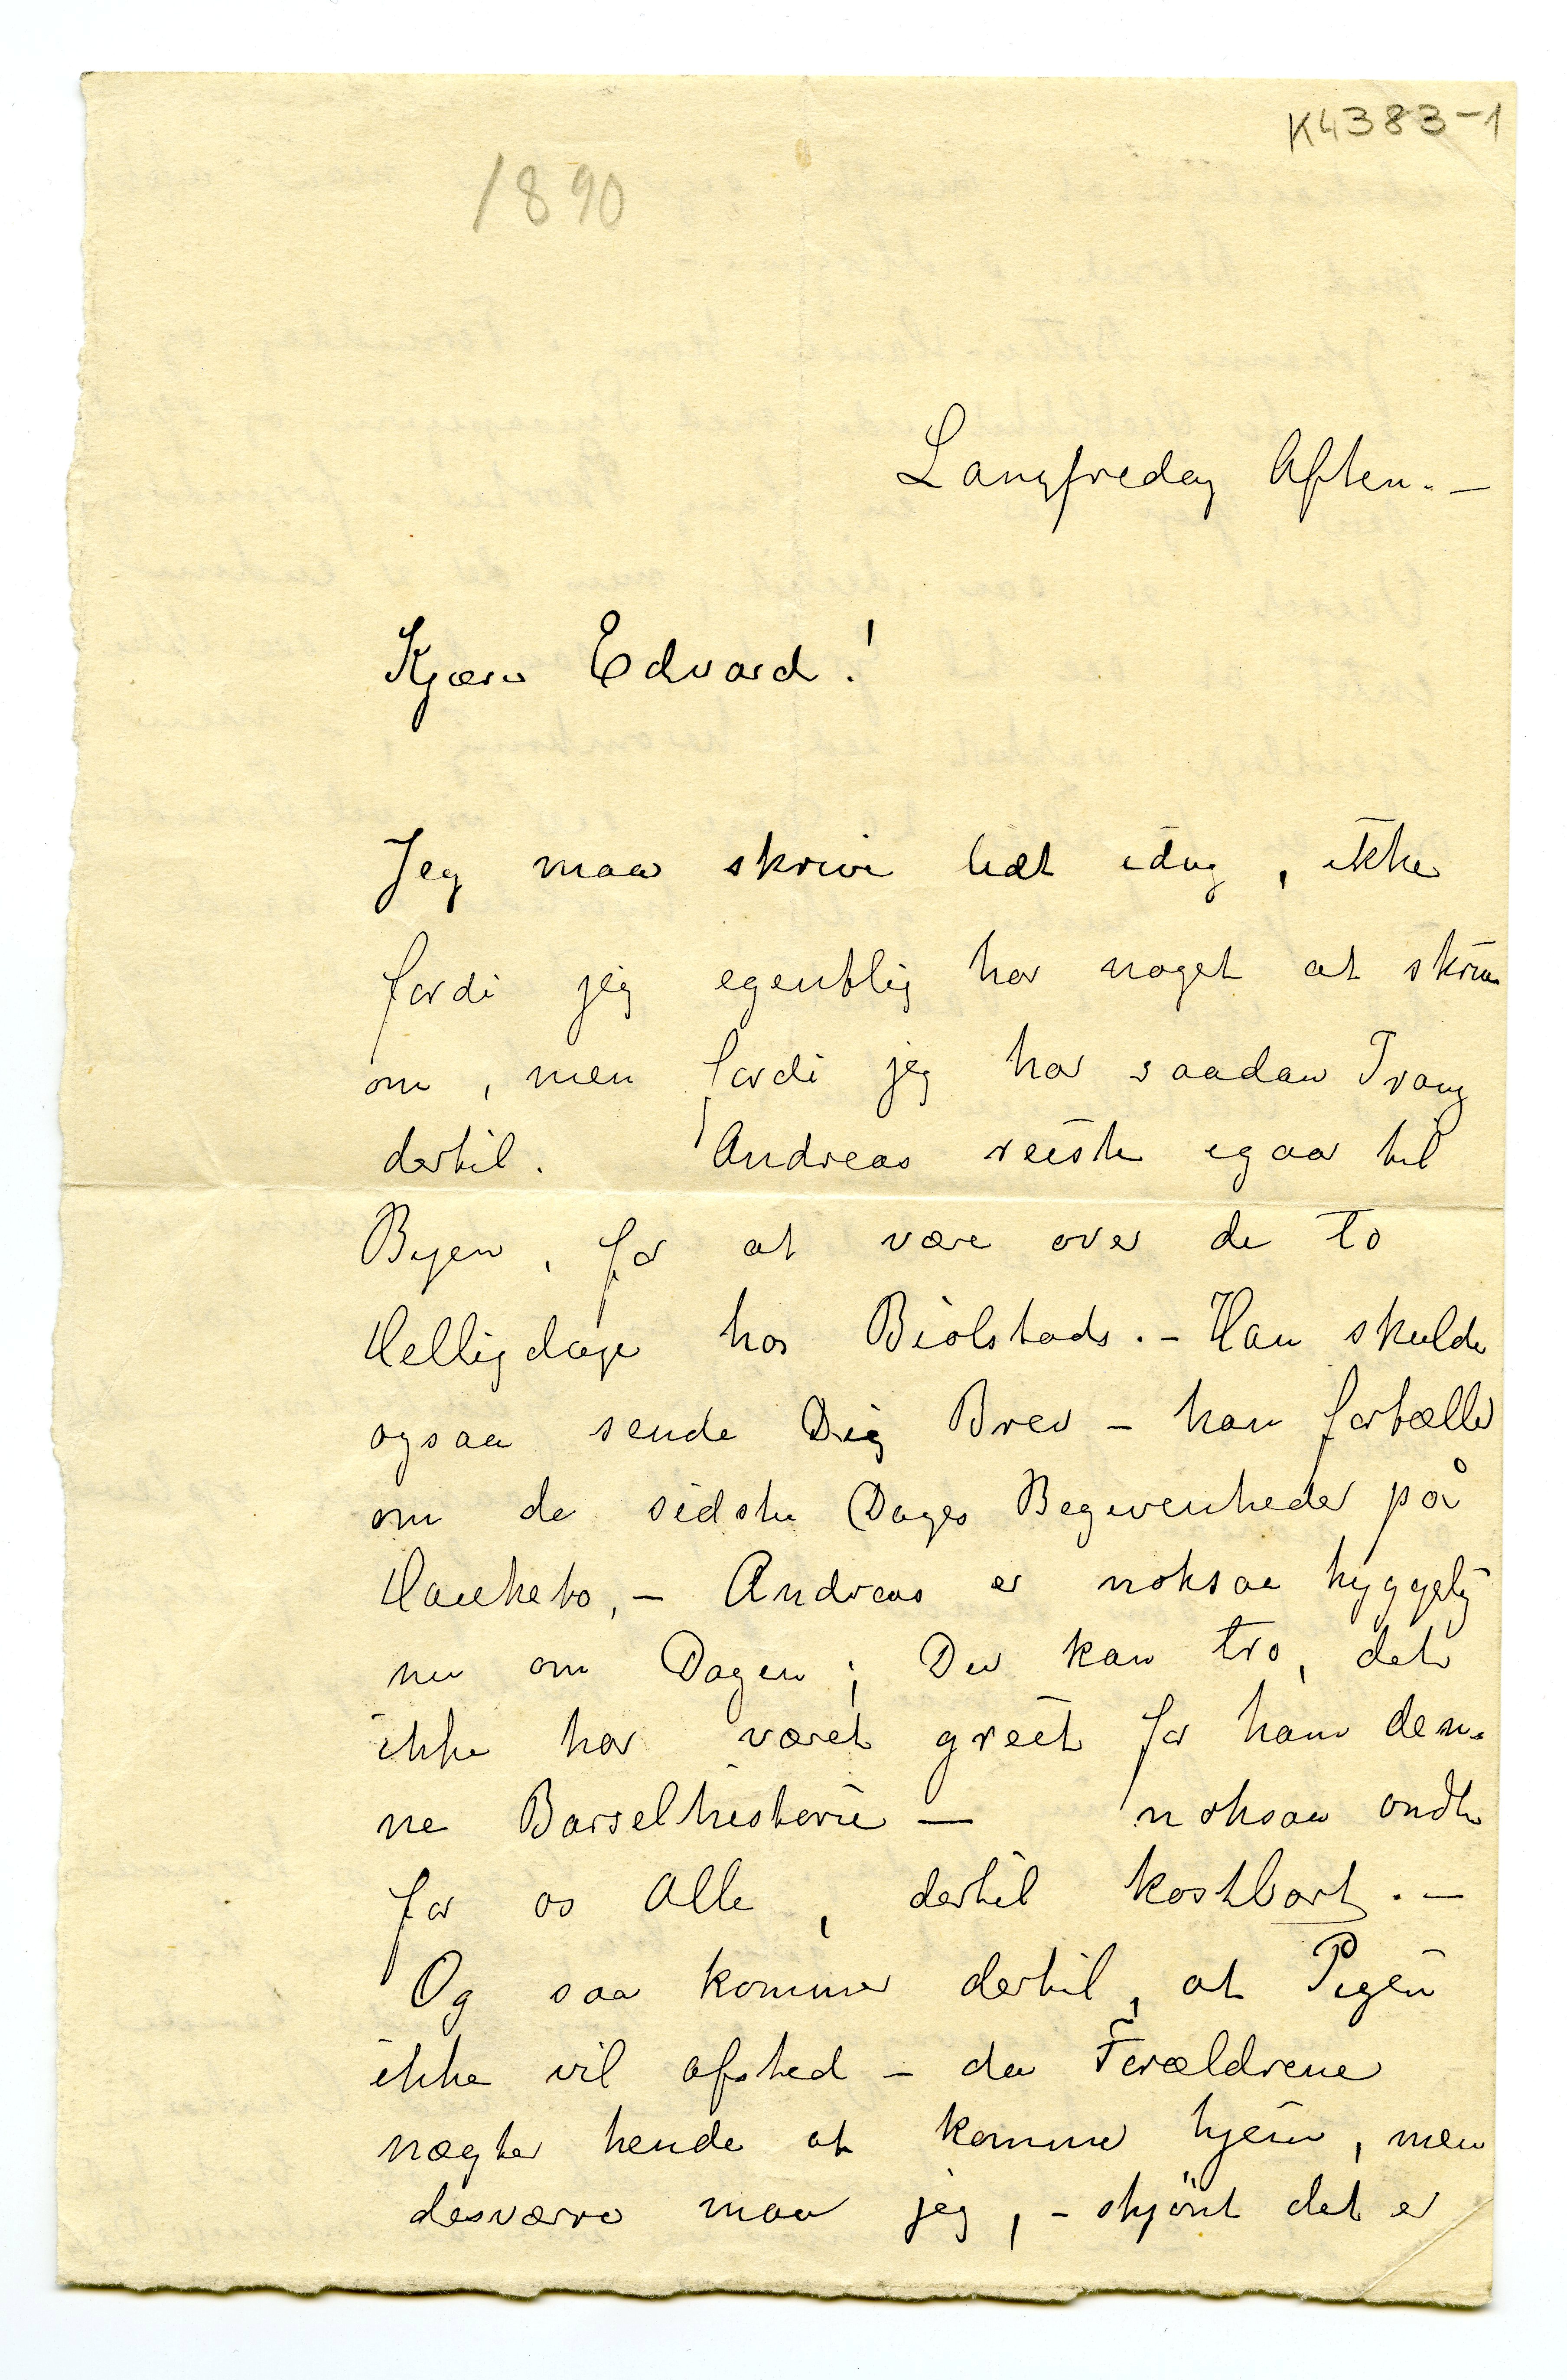 K4383-1
1890
Langfredag Aften. –
Kjære Edvard!
Jeg maa skrive lidt idag, ikke
fordi jeg egentlig har noget at skrive
om, men fordi jeg har saadan Trang
dertil. Andreas reiste igaar til
Byen, for at være over de to
Helligdage hos Biølstads. – Han skulde
ogsaa sende Dig Brev – han fortæller
om de sidste Dages Begivenheder på
Hauketo, – Andreas er noksaa hyggelig
nu om Dagen; Du kan tro, det
ikke har været greit for ham den-
ne Barselhistorie – noksaa ondt
for os Alle, dertil kostbart. –
Og saa kommer dertil, at Pigen
ikke vil afsted – da Forældrene
nægter hende at komme hjem, men
desværre maa jeg, – skjönt det er